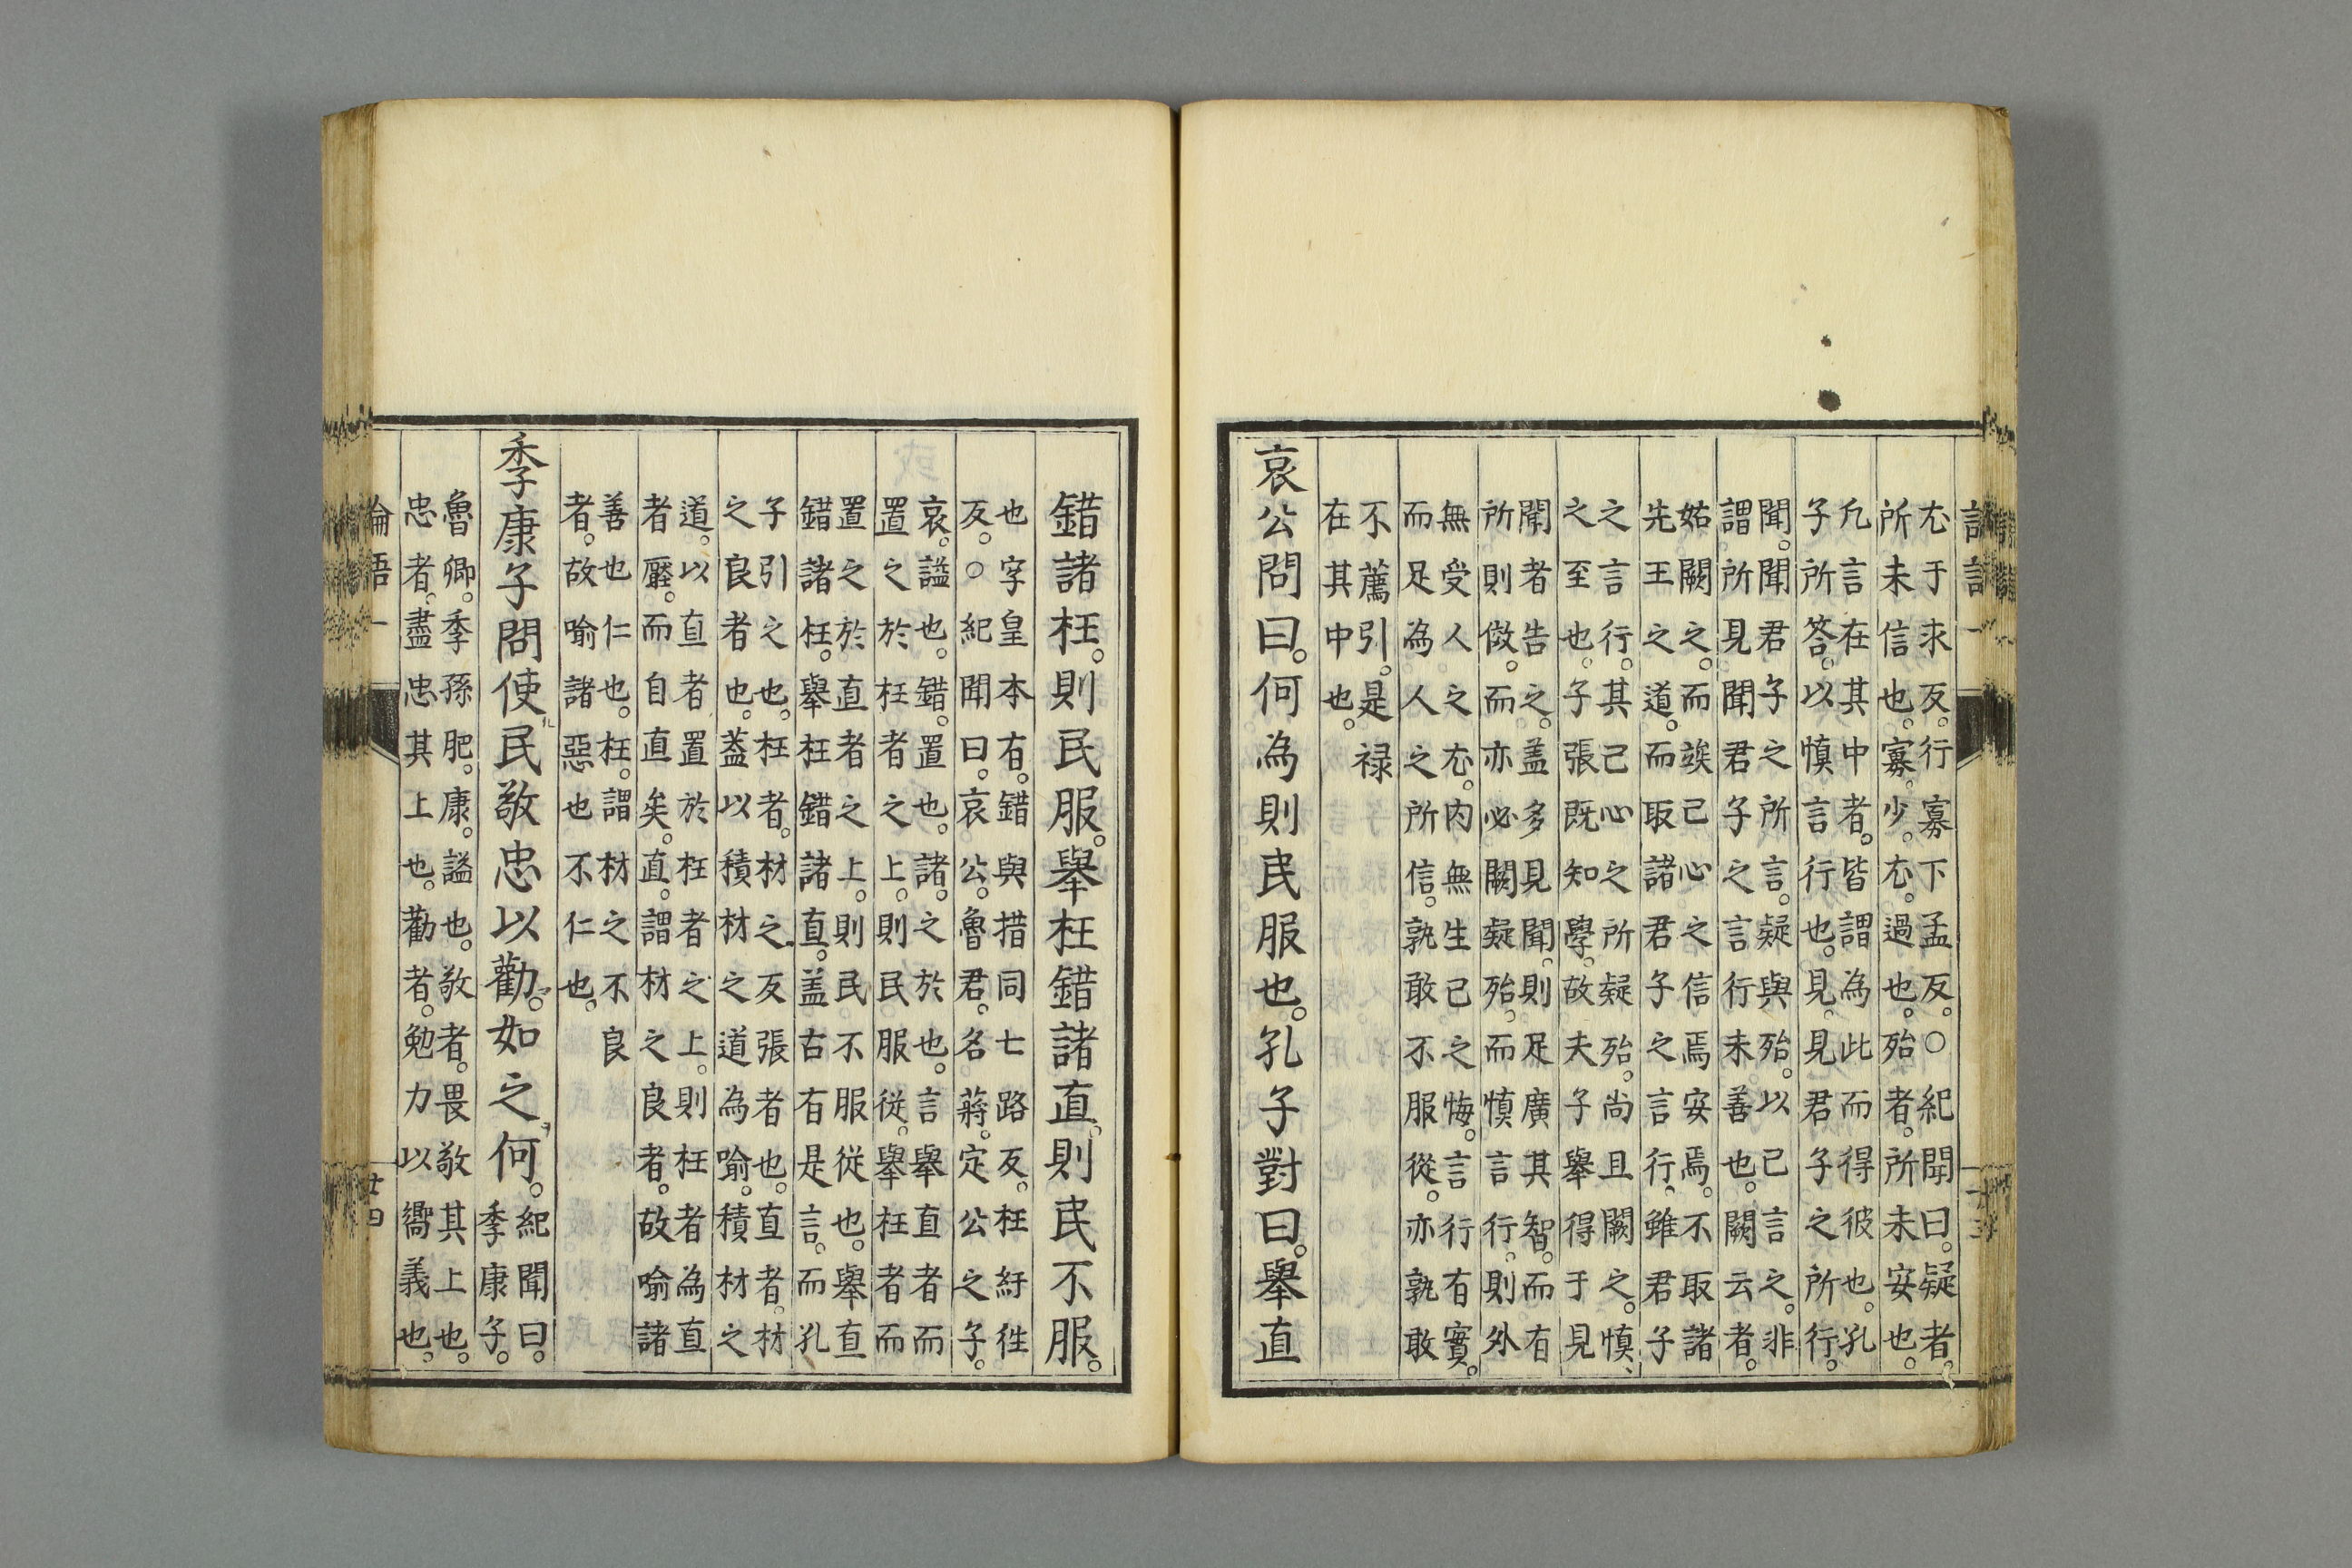 尤于求反。行寡下孟反。○紀聞曰。疑者。
所未信也。寡。少。尤。過也。殆者。所未安也。
凢言在其中者。皆謂為此而得彼也。孔
子所答。以慎言行也。見。見君子之所行。
聞。聞君子之所言。疑與殆。以己言之。非
謂所見聞君子之言行未善也。闕云者。
姑闕之。而竢己心之信焉安焉。不取諸
先王之道。而取諸君子之言行。雖君子
之言行。其己心之所疑殆。尚且闕之。慎、
之至也。子張既知學。故夫子舉得于見
聞者告之。盖多見聞。則足廣其智。而有
所則倣。而亦必闕疑殆。而慎言行。則外
無受人之尤。内無生己之悔。言行有實。
而足為人之所信。孰敢不服從。亦孰敢
不薦引。是禄
在其中也。
哀公問曰。何為則民服也。孔子對曰。舉直
錯諸枉。則民服。舉枉錯諸直。則民不服。
也字皇本有。錯與措同七路反。枉紆徃
反。○紀聞曰。哀公。魯君。名蔣。定公之子。
哀。謚也。錯。置也。諸。之於也。言舉直者而
置之於枉者之上。則民服從。舉枉者而
置之於直者之上。則民不服從也。舉直
錯諸枉。舉枉錯諸直。盖古有是言。而孔
子引之也。枉者。材之反張者也。直者。材
之良者也。蓋以積材之道為喻。積材之
道。以直者置於枉者之上。則枉者為直
者壓。而自直矣。直。謂材之良者。故喻諸
善也仁也。枉。謂材之不良
者。故喻諸惡也不仁也。
季康子問使民敬忠以勸。如之何。紀聞曰。
季康子。
魯卿。季孫肥。康。謚也。敬者。畏敬其上也。
忠者。盡忠其上也。勸者。勉力以嚮義也。
論語一
廿四